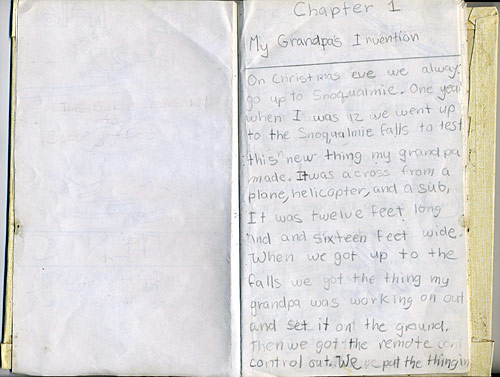 Chapter 1
My Grandpa's Invention
On Christmas eve we always
go up to Snoqualmie. One year
when I was 12 we went up
to the Snoqualmie falls to test
this new thing my grandpa
made. It was a cross from a
plane, helicopter, and a sub,
It was twelve feet long
and and sixteen feet wide.
When we got up to the
falls we got the thing my
grandpa was working on out
and set it on the ground.
then we got the remote con
control out. We put the thing in